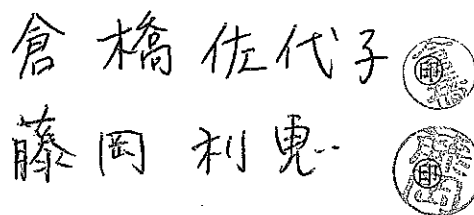 倉橋佐代子 印
藤岡利恵 印